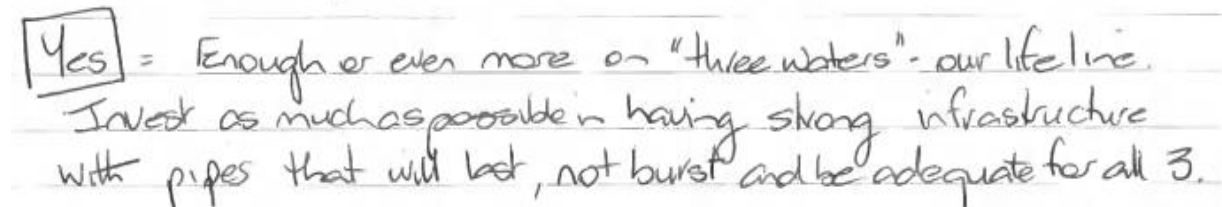 Yes = Enough or even more on "three waters" - our lifeline.
Invest as much as possible in having strong infrastructure
with pipes that will last, not burst and be adequate for all 3.